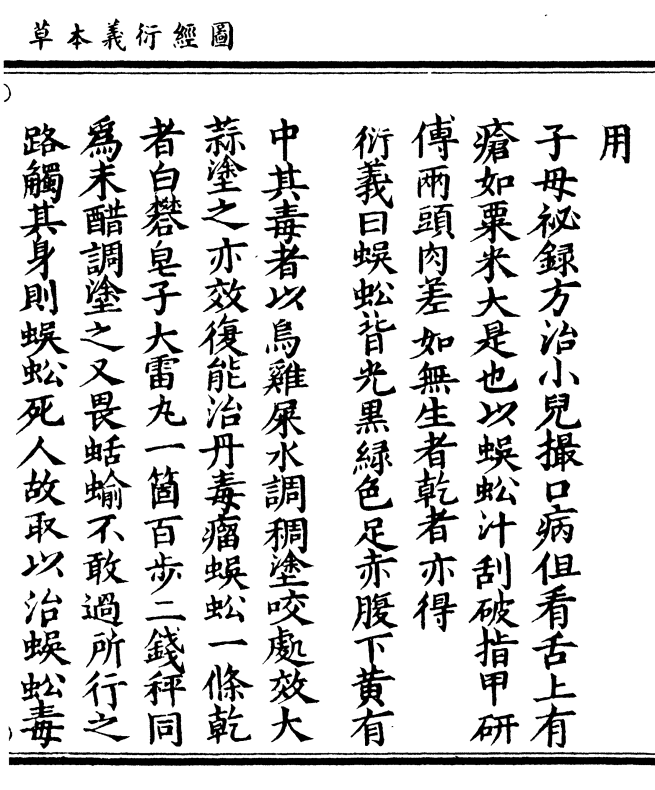 圖經衍義本草
用
子母祕録方治小兒撮口病但看舌上有
瘡如粟米大是也以蜈蚣汁刮破指甲研
傅兩頭肉差如無生者乾者亦得
衍義曰蜈蚣背光黒緑色足赤腹下黄有
中其毒者以烏雞屎水調稠塗咬處效大
蒜塗之亦效復能治丹毒瘤蜈蚣一條乾
者白礬皂子大雷丸一箇百步二錢秤同
爲末醋調塗之又畏蛞蝓不敢過所行之
路觸其身則蜈蚣死人故取以治蜈蚣毒